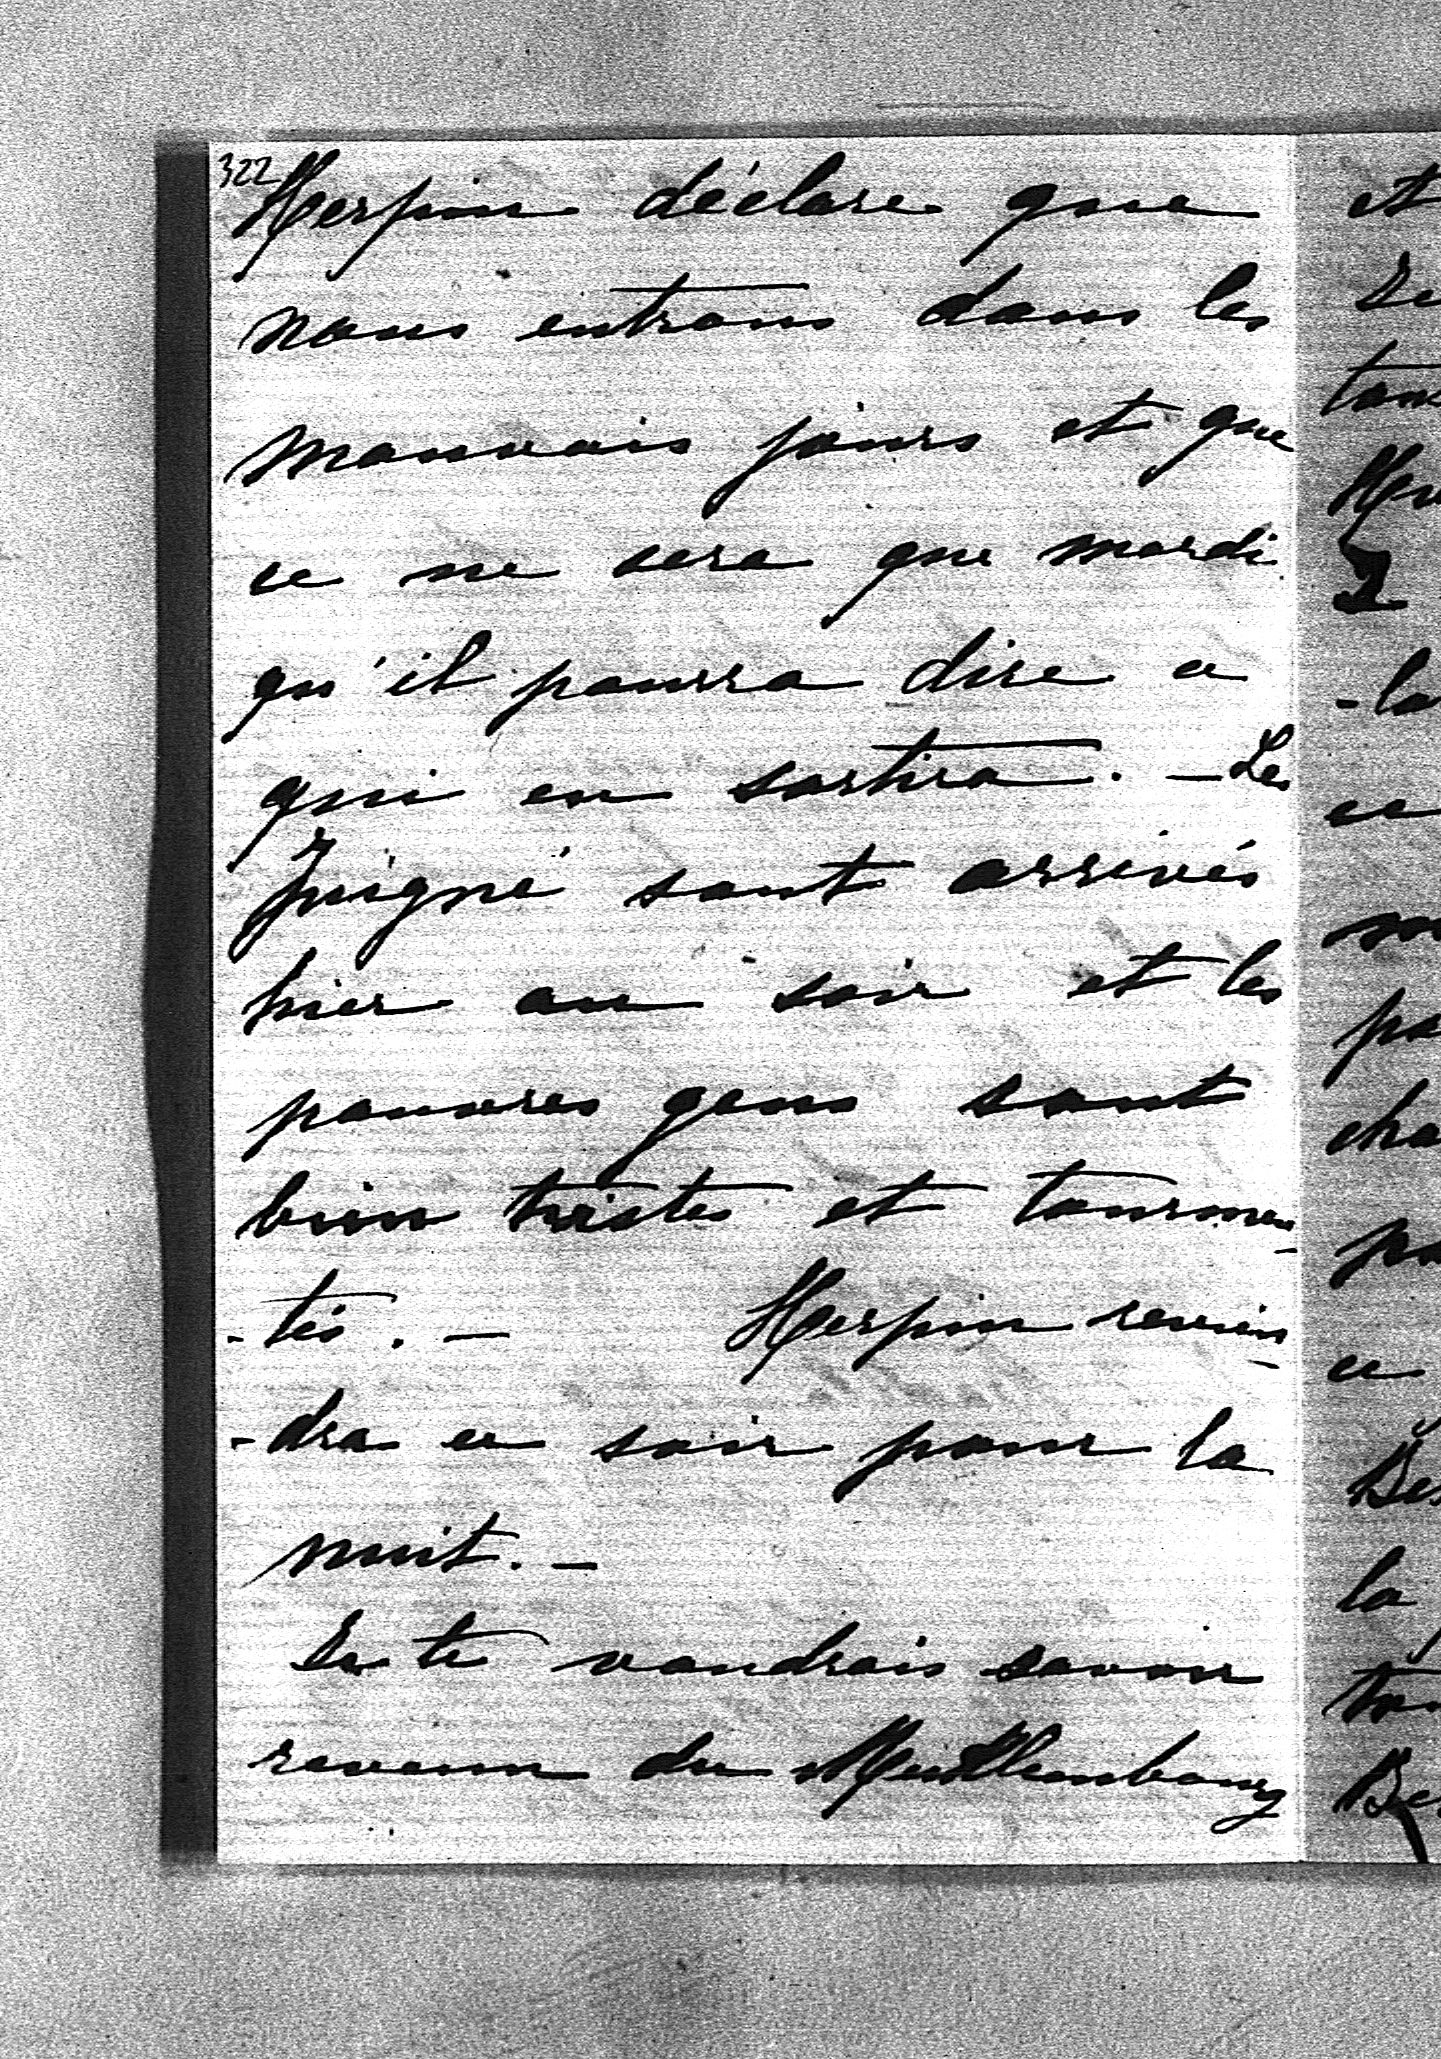 322
Herpin déclare que
nous entrons dans les
mauvais jours et que
ce ne sera que mardi
qu'il pourra dire ce
qui en sortira. — Les
Juigné sont arrivés
hier au soir et les
pauvres gens sont
bien tristes et tourmen
-tés. — Herpin revien
-dra ce soir pour la
nuit. —
Je te voudrais savoir
revenu du
et
tou
-la
ce
pa
cha
pa
ce
la